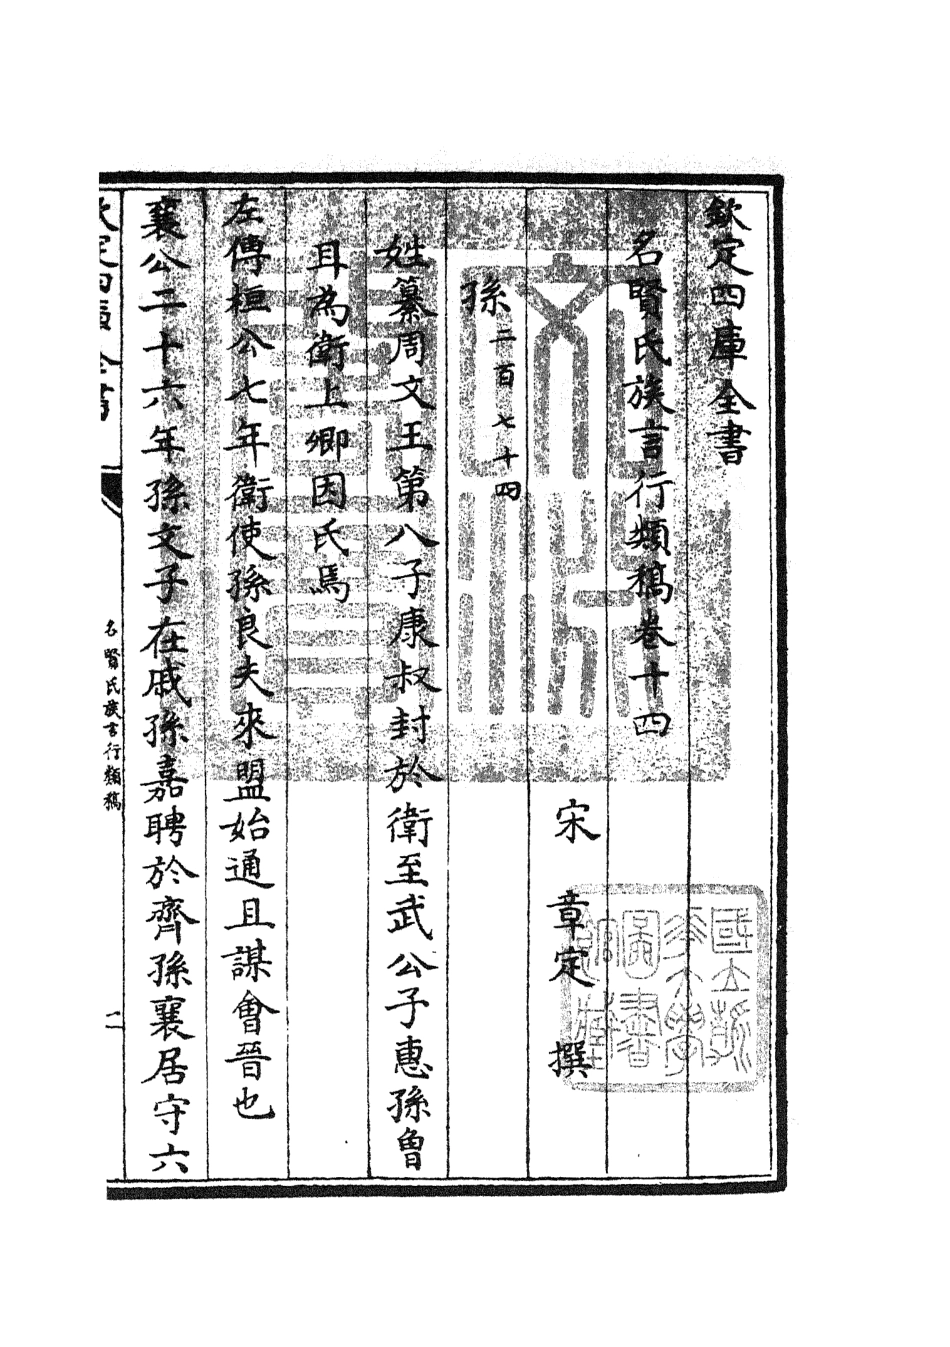 欽定四庫全書
名賢氏族言行類稿卷十四
宋 章定 撰
孫二百七十四
姓纂周文王第八子康叔封於衛至武公子惠孫曾
且為衛上卿因氏焉
左傳桓公七年衛使孫良夫來盟始通且謀會晉也
襄公二十六年孫文子在戚孫嘉聘於齊孫襄居守六
欽定四庫全書
名賢氏族言行類稿
二